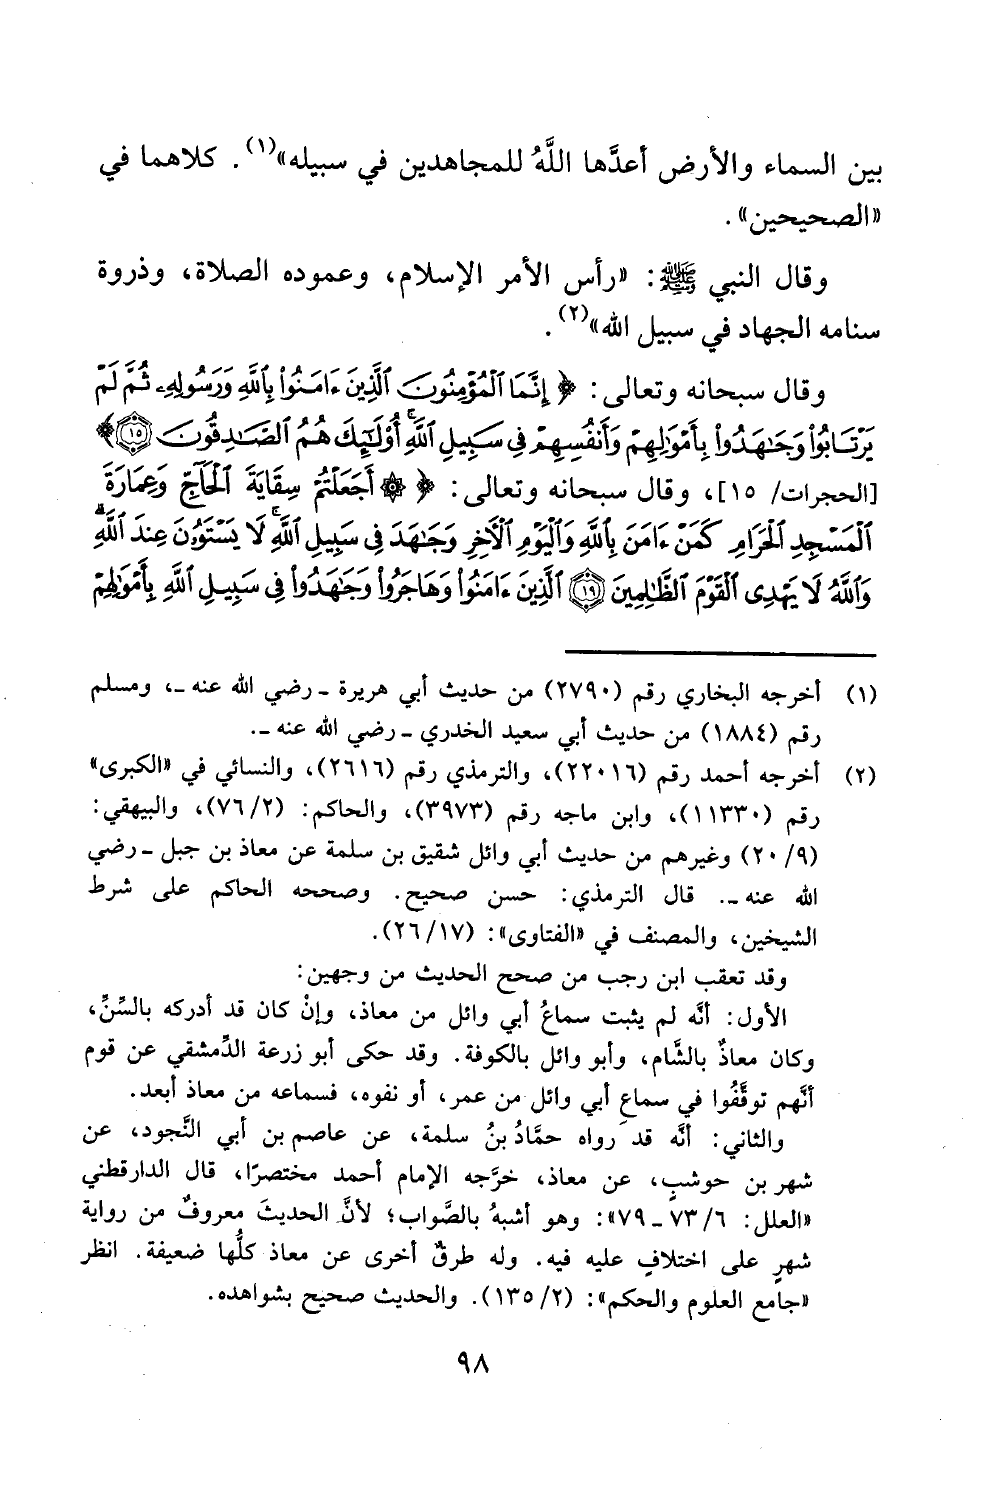 بين السماء والأرض أعدَّها اللَّهُ للمجاهدين في سبيله»(١). كلاهما في
«الصحيحين».
وقال النبي ﷺ: «رأس الأمر الإسلام، وعموده الصلاة، وذروة
سنامه الجهاد في سبيل الله»(٢).
وقال سبحانه وتعالى: ﴿ إِنَّمَا ٱلْمُؤْمِنُونَ ٱلَّذِينَ ءَامَنُوا۟ بِٱللَّهِ وَرَسُولِهِۦ ثُمَّ لَمْ
يَرْتَابُوا۟ وَجَٰهَدُوا۟ بِأَمْوَٰلِهِمْ وَأَنفُسِهِمْ فِى سَبِيلِ ٱللَّهِ ۚ أُو۟لَٰٓئِكَ هُمُ ٱلصَّٰدِقُونَ ١٥ ﴾
[الحجرات/ ١٥]، وقال سبحانه وتعالى: ﴿ ۞ أَجَعَلْتُمْ سِقَايَةَ ٱلْحَآجِّ وَعِمَارَةَ
ٱلْمَسْجِدِ ٱلْحَرَامِ كَمَنْ ءَامَنَ بِٱللَّهِ وَٱلْيَوْمِ ٱلْءَاخِرِ وَجَٰهَدَ فِى سَبِيلِ ٱللَّهِ ۚ لَا يَسْتَوُۥنَ عِندَ ٱللَّهِ ۗ
وَٱللَّهُ لَا يَهْدِى ٱلْقَوْمَ ٱلظَّٰلِمِينَ ١٩ ٱلَّذِينَ ءَامَنُوا۟ وَهَاجَرُوا۟ وَجَٰهَدُوا۟ فِى سَبِيلِ ٱللَّهِ بِأَمْوَٰلِهِمْ
(١) أخرجه البخاري رقم (٢٧٩٠) من حديث أبي هريرة ـ رضي الله عنه ـ، ومسلم
رقم (١٨٨٤) من حديث أبي سعيد الخدري ـ رضي الله عنه ـ.
(٢) أخرجه أحمد رقم (٢٢٠١٦)، والترمذي رقم (٢٦١٦)، والنسائي في «الكبرى»
رقم (١١٣٣٠)، وابن ماجه رقم (٣٩٧٣)، والحاكم: (٢/ ٧٦)، والبيهقي:
(٩/ ٢٠) وغيرهم من حديث أبي وائل شقيق بن سلمة عن معاذ بن جبل ـ رضي
الله عنه ـ. قال الترمذي: حسن صحيح. وصححه الحاكم على شرط
الشيخين، والمصنف في «الفتاوى»: (١٧/ ٢٦).
وقد تعقب ابن رجب من صحح الحديث من وجهين:
الأول: أنَّه لم يثبت سماعُ أبي وائل من معاذ، وإنْ كان قد أدركه بالسِّنِّ،
وكان معاذٌ بالشَّام، وأبو وائل بالكوفة. وقد حكى أبو زرعة الدِّمشقي عن قوم
أنَّهم توقَّفُوا في سماعِ أبي وائل من عمر، أو نفوه، فسماعه من معاذ أبعد.
والثاني: أنَّه قد رواه حمَّادُ بنُ سلمة، عن عاصم بن أبي النَّجود، عن
شهر بن حوشبٍ، عن معاذ، خرَّجه الإمام أحمد مختصرًا، قال الدارقطني
«العلل: ٦/ ٧٣ ـ ٧٩»: وهو أشبهُ بالصَّواب؛ لأنَّ الحديثَ معروفٌ من رواية
شهرٍ على اختلافٍ عليه فيه. وله طرقٌ أخرى عن معاذ كلُّها ضعيفة. انظر
«جامع العلوم والحكم»: (٢/ ١٣٥). والحديث صحيح بشواهده.
٩٨